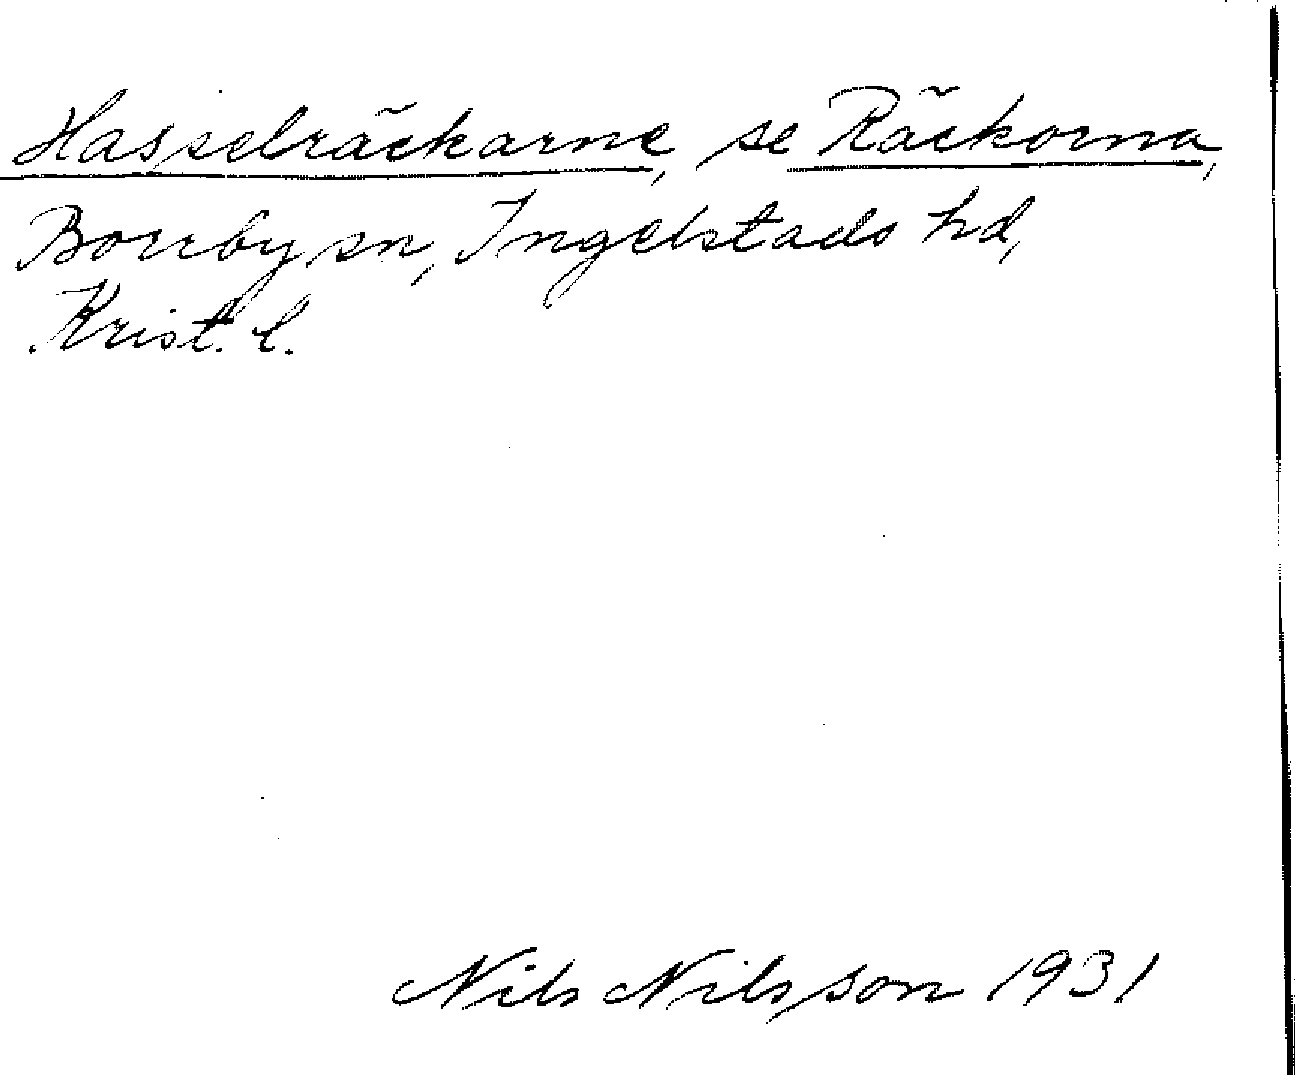 Hasselräckarne, se Räckorna,
Borrby sn, Ingelstads hd,
Krist. l.
Nils Nilsson 1931